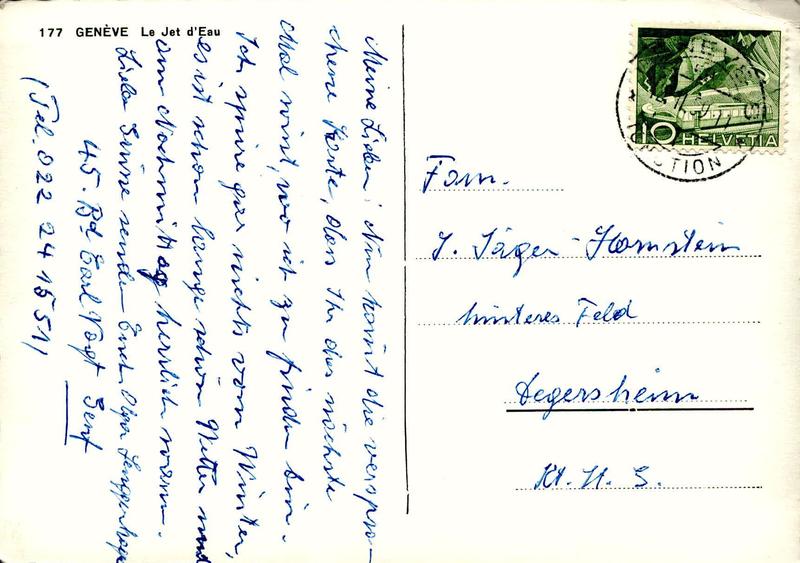 177 GENÈVE Le Jet d'Eau
Meine Lieben! Nun kommt die verspro-
chene Karte, dass Ihr das nächste
Mal wisst, wo ich zu finden bin.
Ich spüre gar nichts vom Winter,
es ist schon lange schön Wetter und
am Nachmittag herrlich warm.
Liebe Grüsse sendet Euch Olga
45. Bd Carl Vogt Genf
(Tel. 022 24 15 51)
HELVETIA
10
JONCTION
Fam.
J. Jäger-Hornstein
hinteres Feld
Degersheim
Kt. St. G.